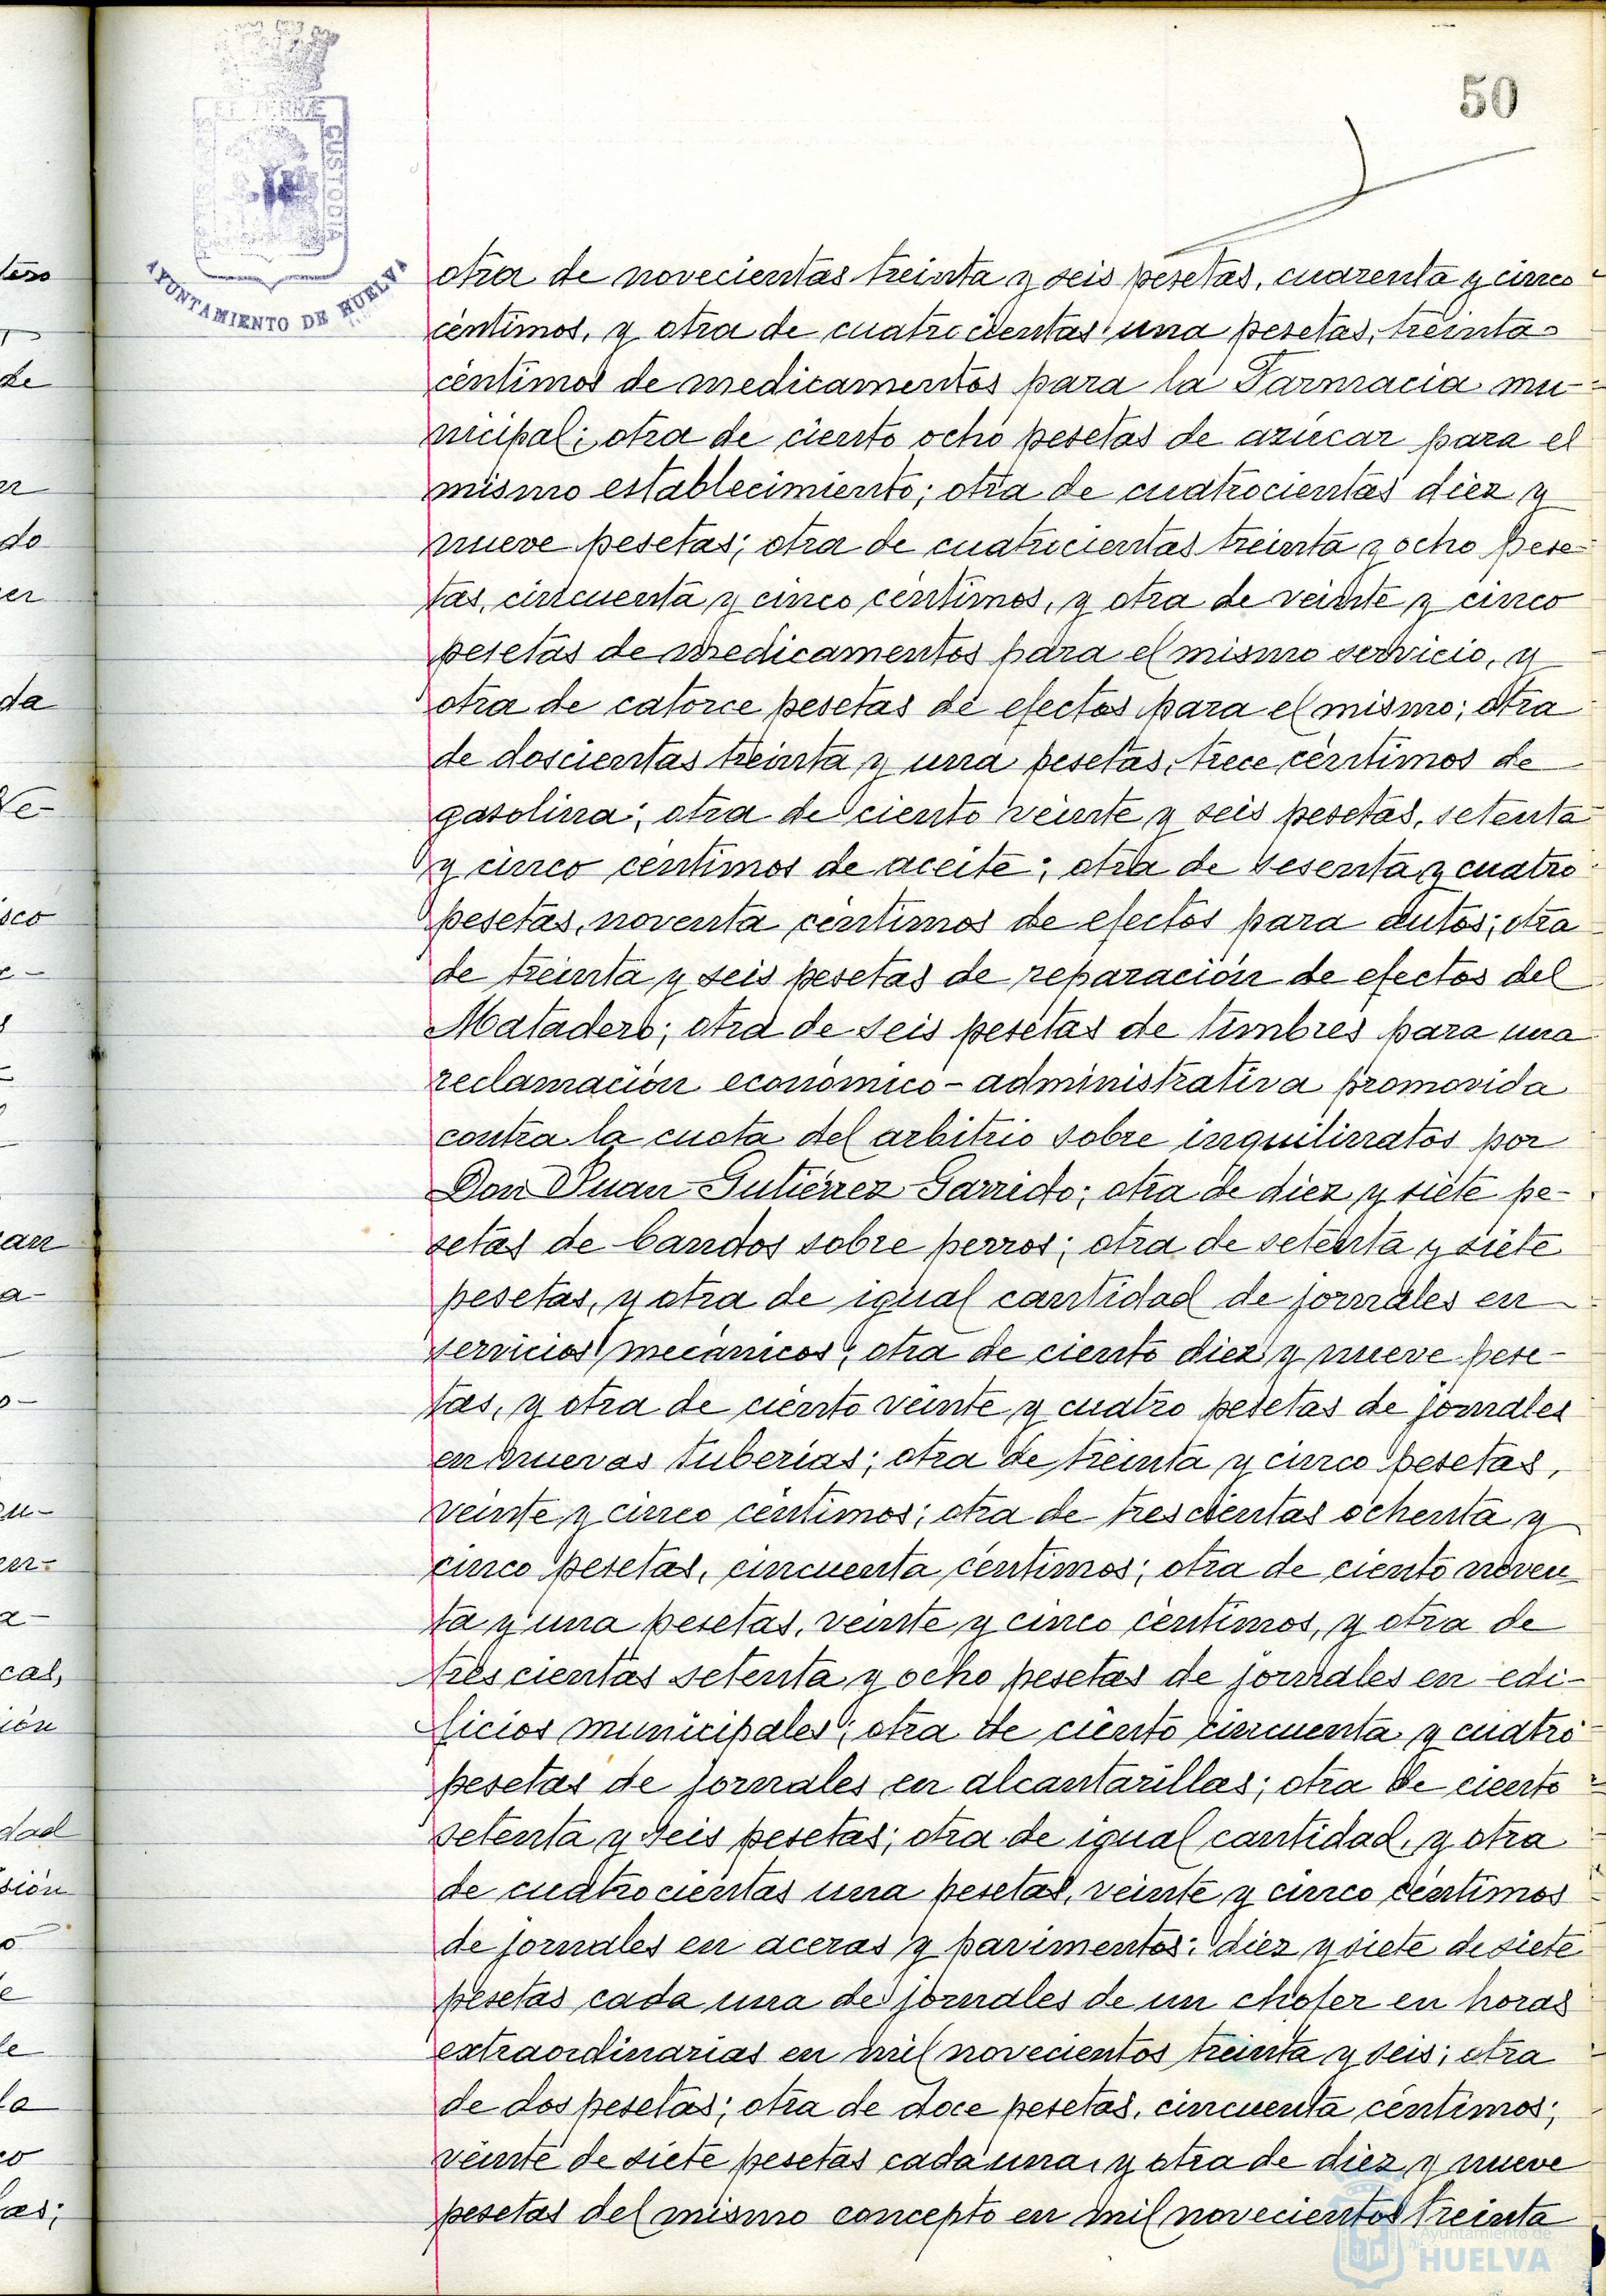 50
CUSTODIA
AYUNTAMIENTO DE HUELVA
otra de novecientas treinta y seis pesetas, cuarenta y cinco
céntimos, y otra de cuatrocientas una pesetas, treinta
céntimos de medicamentos para la Farmacia mu-
nicipal; otra de ciento ocho pesetas de azúcar para el
mismo establecimiento; otra de cuatrocientas diez y
nueve pesetas; otra de cuatrocientas treinta y ocho pese-
tas, cincuenta y cinco céntimos, y otra de veinte y cinco
pesetas de medicamentos para el mismo servicio, y
otra de catorce pesetas de efectos para el mismo; otra
de doscientas treinta y una pesetas, trece céntimos de
gasolina; otra de ciento veinte y seis pesetas, setenta
y cinco céntimos de aceite; otra de sesenta y cuatro
pesetas, noventa céntimos de efectos para autos; otra
de treinta y seis pesetas de reparación de efectos del
Matadero; otra de seis pesetas de timbres para una
reclamación económico-administrativa promovida
contra la cuota del arbitrio sobre inquilinatos por
Don Juan Gutiérrez Garrido; otra de diez y siete pe-
setas de bandos sobre perros; otra de setenta y siete
pesetas, y otra de igual cantidad de jornales en
servicios mecánicos; otra de ciento diez y nueve pese-
tas, y otra de ciento veinte y cuatro pesetas de jornales
en nuevas tuberías; otra de treinta y cinco pesetas,
veinte y cinco céntimos; otra de trescientas ochenta y
cinco pesetas, cincuenta céntimos; otra de ciento noven
ta y una pesetas, veinte y cinco céntimos, y otra de
trescientas setenta y ocho pesetas de jornales en edi-
ficios municipales; otra de ciento cincuenta y cuatro
pesetas de jornales en alcantarillas; otra de ciento
setenta y seis pesetas; otra de igual cantidad, y otra
de cuatrocientas una pesetas, veinte y cinco céntimos
de jornales en aceras y pavimentos; diez y siete de siete
pesetas cada una de jornales de un chofer en horas
extraordinarias en mil novecientos treinta y seis; otra
de dos pesetas; otra de doce pesetas, cincuenta céntimos;
veinte de siete pesetas cada una, y otra de diez y nueve
pesetas del mismo concepto en mil novecientos treinta
Ayuntamiento de
HUELVA